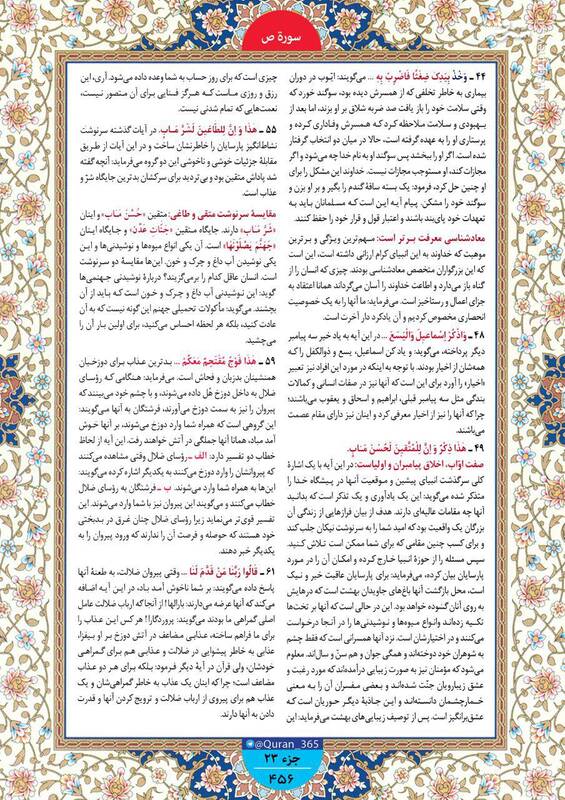 سورهٔ ص
۴۴ ـ وَخُذْ بِيَدِكَ ضِغْثًا فَاضْرِبْ بِهِ ... می‌گویند: ایّوب در دوران
بیماری به خاطر تخلفی که از همسرش دیده بود، سوگند خورد که
وقتی سلامت خود را باز یافت صد ضربه شلاق بر او بزند، اما بعد از
بهبودی و سلامت ملاحظه کرد که همسرش وفاداری کرده و
پرستاری او را به عهده گرفته است، حالا در میان دو انتخاب گرفتار
شده است. اگر او را ببخشد پس سوگند او به نام خدا چه می‌شود و اگر
مجازات کند، او مستوجب مجازات نیست. خداوند این مشکل را برای
او چنین حل کرد، فرمود: یک بسته ساقهٔ گندم را بگیر و بر او بزن و
سوگند خود را مشکن. پیام آیه این است که مسلمانان باید به
تعهدات خود پای‌بند باشند و اعتبار قول و قرار خود را حفظ کنند.
معادشناسی معرفت برتر است: مهم‌ترین ویژگی و برترین
موهبت که خداوند به این انبیای کرام ارزانی داشته است، این است
که این بزرگواران متخصص معادشناسی بودند. چیزی که انسان را از
گناه باز می‌دارد و اطاعت خداوند را آسان می‌گرداند همانا اعتقاد به
جزای اعمال و رستاخیز است. می‌فرماید: ما آنها را به یک خصوصیت
انحصاری مخصوص کردیم و آن یادکرد دار آخرت است.
۴۸ ـ وَاذْكُرْ إِسْمَاعِيلَ وَالْيَسَعَ ... در این آیه به یاد خیر سه پیامبر
دیگر پرداخته، می‌گوید: و یاد کن اسماعیل، یسع و ذوالکفل را که
همه‌شان از اخیار بودند. با توجه به اینکه در مورد این افراد نیز تعبیر
«اخیار» را آورد برای این است که آنها نیز در صفات انسانی و کمالات
بندگی مثل سه پیامبر قبلی، ابراهیم و اسحاق و یعقوب می‌باشند؛
چرا که آنها را نیز از اخیار معرفی کرد و اینان نیز دارای مقام عصمت
می‌باشند.
۴۹ ـ هَذَا ذِكْرٌ وَ إِنَّ لِلْمُتَّقِينَ لَحُسْنَ مَـَابٍ.
صفت اوّاب، اخلاق پیامبران و اولیاست: در این آیه با یک اشارهٔ
کلی سرگذشت انبیای پیشین و موقعیت آنها در پیشگاه خدا را
متذکر شده می‌گوید: این یک یادآوری و یک تذکر است که بدانید
آنها چه مقامات عالیه‌ای دارند. هدف از بیان فرازهایی از زندگی آن
بزرگان یک واقعیت بود که امید شما را به سرنوشت نیکان جلب کند
و برای کسب چنین مقامی که برای شما ممکن است تلاش کنید.
سپس مسئله را از حوزهٔ انبیا خارج کرده و امکان آن را در مورد
پارسایان بیان کرده، می‌فرماید: برای پارسایان عاقبت خیر و نیک
است، محل بازگشت آنها باغ‌های جاویدان بهشت است که درهایش
به روی آنان گشوده خواهد بود. این در حالی است که آنها بر تخت‌ها
تکیه زده‌اند وانواع میوه‌ها و نوشیدنی‌ها را در آنجا درخواست
می‌کنند و در اختیارشان است. نزد آنها همسرانی است که فقط چشم
به شوهران خود دوخته‌اند و همگی جوان و هم سنّ و سال‌اند. معلوم
می‌شود که مؤمنان نیز به صورت زیبایی درآمده‌اند که مورد رغبت و
عشق زیبارویان جنّت شده‌اند و بعضی مفسران آن را به معنی
خمارچشمان دانسته‌اند و این جاذبهٔ دیگر حوریان است که
عشق‌برانگیز است. پس از توصیف زیبایی‌های بهشت می‌فرماید: این
چیزی است که برای روز حساب به شما وعده داده می‌شود. آری، این
رزق و روزی ماست که هرگز فنایی برای آن متصور نیست،
نعمت‌هایی که تمام شدنی نیست.
۵۵ ـ هَذَا وَ إِنَّ لِلطَّاغِينَ لَشَرَّ مَـَابٍ. در آیات گذشته سرنوشت
نشاط‌انگیز پارسایان را خاطرنشان ساخت و در این آیات از طریق
مقابلهٔ جزئیات خوشی و ناخوشی این دو گروه می‌فرماید: آنچه گفته
شد پاداش متقین بود و بی‌تردید برای سرکشان بدترین جایگاه شرّ و
عذاب است.
مقایسهٔ سرنوشت متقی و طاغی: متقین «حُسْنَ مَـَابٍ» و اینان
«شَرَّ مَـَابٍ» دارند. جایگاه متقین «جَنَّاتِ عَدْنٍ» و جایگاه اینان
«جَهَنَّمَ يَصْلَوْنَهَا» است. آن یکی انواع میوه‌ها و نوشیدنی‌ها و این
یکی نوشیدن آب داغ و چرک و خون. این‌ها مقایسهٔ دو سرنوشت
است. انسان عاقل کدام را برمی‌گزیند؟ دربارهٔ نوشیدنی جهنمی‌ها
گوید: این نوشیدنی آب داغ و چرک و خون است که باید از آن
بچشند. می‌گوید: مأکولات تحمیلی جهنم این گونه نیست که به آن
عادت کنید، بلکه هر لحظه احساس می‌کنید، برای اولین بار آن را
می‌چشید.
۵۹ ـ هَذَا فَوْجٌ مُقْتَحِمٌ مَعَكُمْ ... بدترین عذاب برای دوزخیان
همنشینان بدزبان و فحاش است. می‌فرماید: هنگامی که رؤسای
ضلال به داخل دوزخ هُل داده می‌شوند، و با چشم خود می‌بینند که
پیروان را نیز به سمت دوزخ می‌آورند، فرشتگان به آنها می‌گویند:
این گروهی است که همراه شما وارد دوزخ می‌شوند، بر آنها خوش
آمد مباد، همانا آنها جملگی در آتش خواهند رفت. این آیه از لحاظ
خطاب دو تفسیر دارد: الف ـ رؤسای ضلال وقتی مشاهده می‌کنند
که پیروانشان را وارد دوزخ می‌کنند به یکدیگر اشاره کرده می‌گویند:
این‌ها به همراه شما وارد می‌شوند. ب ـ فرشتگان به رؤسای ضلال
خطاب می‌کنند و می‌گویند این پیروان نیز با شما وارد می‌شوند. این
تفسیر قوی‌تر می‌نماید زیرا رؤسای ضلال چنان غرق در بدبختی
خود هستند که حوصله و فرصت آن را ندارند که ورود پیروان را به
یکدیگر خبر دهند.
۶۱ ـ قَالُوا رَبَّنَا مَنْ قَدَّمَ لَنَا ... وقتی پیروان ضلالت، به طعنهٔ آنها
پاسخ داده می‌گویند: بر شما ناخوش آمد باد، در این آیه اضافه
می‌کند که آنها عرضه می‌دارند: بارالها! از آنجا که ارباب ضلالت عامل
اصلی گمراهی ما بودند می‌گویند: پروردگارا! هر کس این عذاب را
برای ما فراهم ساخته، عذابی مضاعف در آتش دوزخ بر او بیفزا،
عذابی به خاطر پیشوایی در ضلالت و عذابی هم برای گمراهی
خودشان؛ ولی قرآن در آیهٔ دیگر فرمود: بلکه برای هر دو عذاب
مضاعف است؛ چرا که اینان یک عذاب به خاطر گمراهی‌شان و یک
عذاب هم برای پیروی از ارباب ضلالت و ترویج کردن آنها و قدرت
دادن به آنها دارند.
@Quran_365
جزء ۲۳
۴۵۶